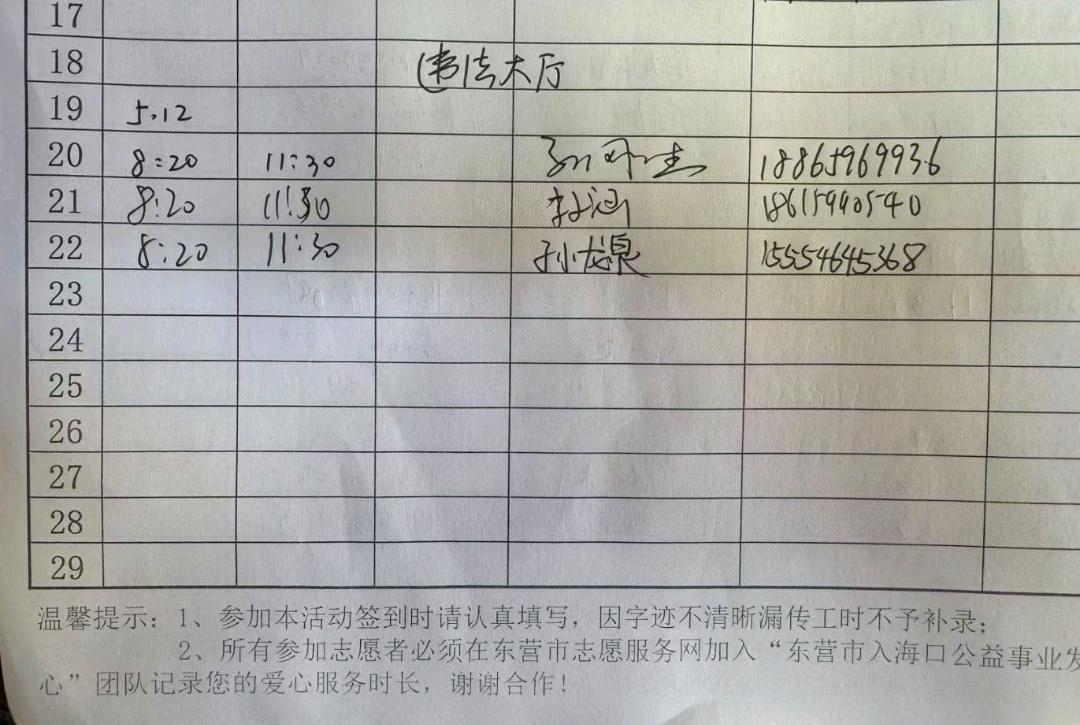 17
18 违法大厅
19 5.12
20 8:20 11:30 18865969936
21 8:20 11:30 18615990540
22 8:20 11:30 孙龙泉 15554645368
23
24
25
26
27
28
29
温馨提示：1、参加本活动签到时请认真填写，因字迹不清晰漏传工时不予补录；
2、所有参加志愿者必须在东营市志愿服务网加入“东营市入海口公益事业发
心”团队记录您的爱心服务时长，谢谢合作！